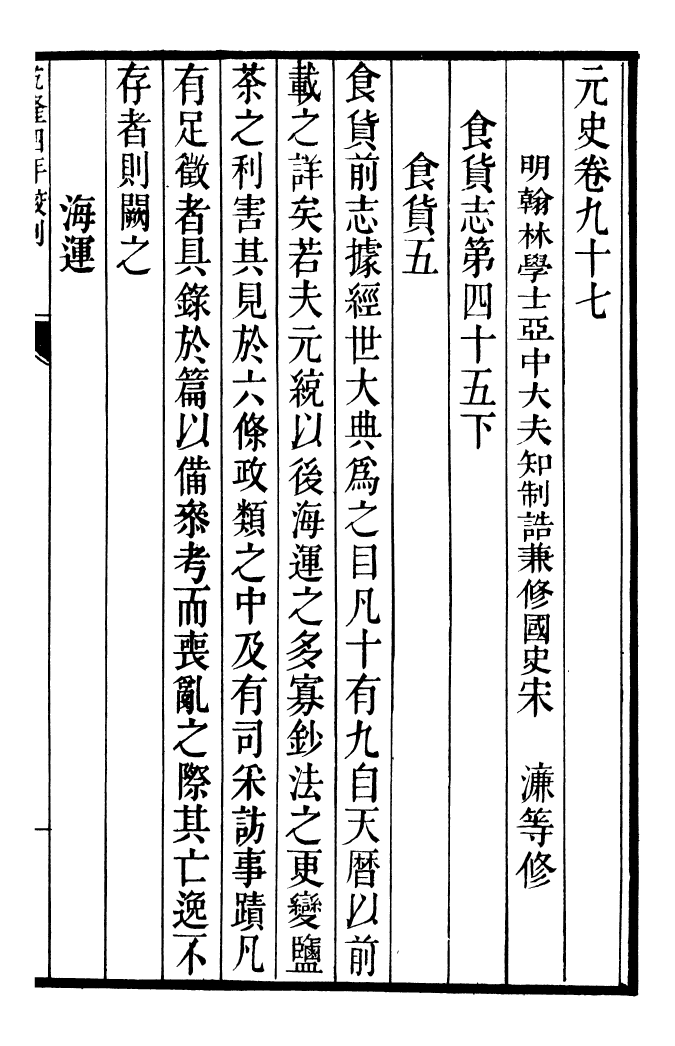 元史卷九十七
明翰林學士亞中大夫知制誥兼修國史宋　濂等修
食貨志第四十五下
食貨五
食貨前志據經世大典爲之目凡十有九自天曆以前
載之詳矣若夫元統以後海運之多寡鈔法之更變鹽
茶之利害其見於六條政類之中及有司采訪事蹟凡
有足徵者具錄於篇以備參考而喪亂之際其亡逸不
存者則闕之
海運